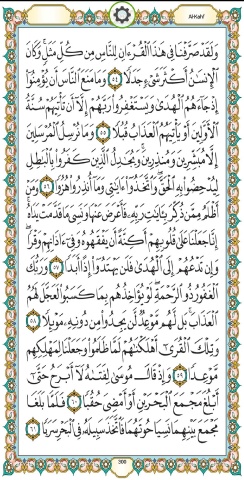 Al-Kahf
وَلَقَدْ صَرَّفْنَا فِي هَٰذَا الْقُرْءَانِ لِلنَّاسِ مِن كُلِّ مَثَلٍ ۚ وَكَانَ
الْإِنسَٰنُ أَكْثَرَ شَيْءٍ جَدَلًا ٥٤ وَمَا مَنَعَ النَّاسَ أَن يُؤْمِنُوا
إِذْ جَاءَهُمُ الْهُدَىٰ وَيَسْتَغْفِرُوا رَبَّهُمْ إِلَّا أَن تَأْتِيَهُمْ سُنَّةُ
الْأَوَّلِينَ أَوْ يَأْتِيَهُمُ الْعَذَابُ قُبُلًا ٥٥ وَمَا نُرْسِلُ الْمُرْسَلِينَ
إِلَّا مُبَشِّرِينَ وَمُنذِرِينَ ۚ وَيُجَٰدِلُ الَّذِينَ كَفَرُوا بِالْبَٰطِلِ
لِيُدْحِضُوا بِهِ الْحَقَّ ۖ وَاتَّخَذُوا ءَايَٰتِي وَمَا أُنذِرُوا هُزُوًا ٥٦ وَمَنْ
أَظْلَمُ مِمَّن ذُكِّرَ بِـَٔايَٰتِ رَبِّهِ فَأَعْرَضَ عَنْهَا وَنَسِيَ مَا قَدَّمَتْ يَدَاهُ ۚ
إِنَّا جَعَلْنَا عَلَىٰ قُلُوبِهِمْ أَكِنَّةً أَن يَفْقَهُوهُ وَفِي ءَاذَانِهِمْ وَقْرًا ۖ
وَإِن تَدْعُهُمْ إِلَى الْهُدَىٰ فَلَن يَهْتَدُوا إِذًا أَبَدًا ٥٧ وَرَبُّكَ
الْغَفُورُ ذُو الرَّحْمَةِ ۖ لَوْ يُؤَاخِذُهُم بِمَا كَسَبُوا لَعَجَّلَ لَهُمُ
الْعَذَابَ ۚ بَل لَّهُم مَّوْعِدٌ لَّن يَجِدُوا مِن دُونِهِ مَوْئِلًا ٥٨
وَتِلْكَ الْقُرَىٰ أَهْلَكْنَٰهُمْ لَمَّا ظَلَمُوا وَجَعَلْنَا لِمَهْلِكِهِم
مَّوْعِدًا ٥٩ وَإِذْ قَالَ مُوسَىٰ لِفَتَىٰهُ لَا أَبْرَحُ حَتَّىٰ
أَبْلُغَ مَجْمَعَ الْبَحْرَيْنِ أَوْ أَمْضِيَ حُقُبًا ٦٠ فَلَمَّا بَلَغَا
مَجْمَعَ بَيْنِهِمَا نَسِيَا حُوتَهُمَا فَاتَّخَذَ سَبِيلَهُ فِي الْبَحْرِ سَرَبًا ٦١
300